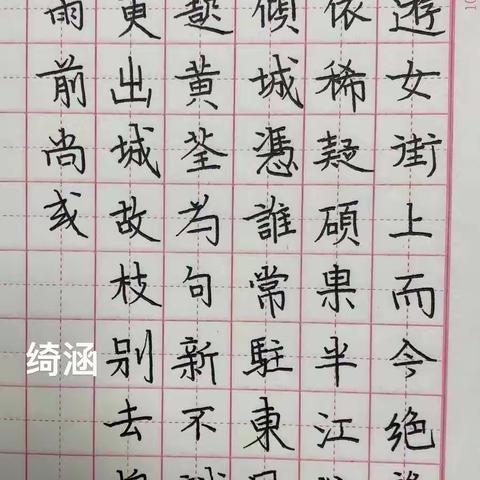 遊女街上而今絕
依稀疑碩果半江
傾城憑誰常駐東
黃荃为句新不
更出城故枝别去
雨前尚或
绮涵